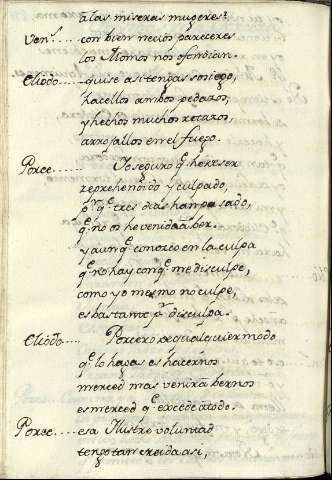 a las miseras mugeres?
Ven.s .... con bien necios pareceres
los Momos nos ofendian.
Eliodo .... quise asi tengas sosiego,
hacellos ambos pedazos,
y hechos muchos retazos,
arrojallos en el fuego.
Porce .... Yo seguro q.e he de ser
reprehendido y culpado,
p.r q.e tres dias han pasado,
q.e no os he venido a ber.
y aun q.e conozco en la culpa
q.e no hay con q.e me disculpe,
como yo mesmo no culpe,
es bastante p.r disculpa.
Eliodo .... Porcero de qualquier modo
q.e lo hagas es hacernos
merced mas venir a bernos
es merced q.e excede a todo.
Porce .... esa Ilustre voluntad
tengo tan creida asi,